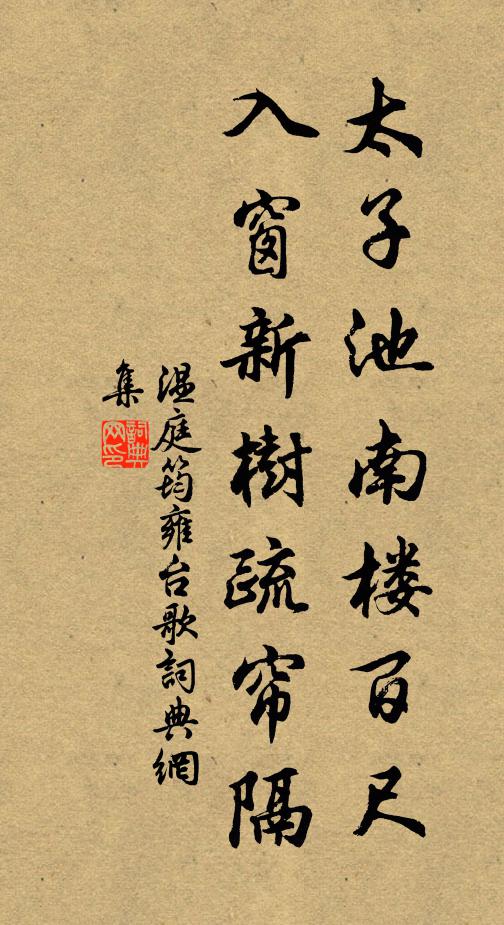 太子池南楼百尺
入窗新樹疏帘隔
温庭筠雍台歌詞典網
集
詞典網印